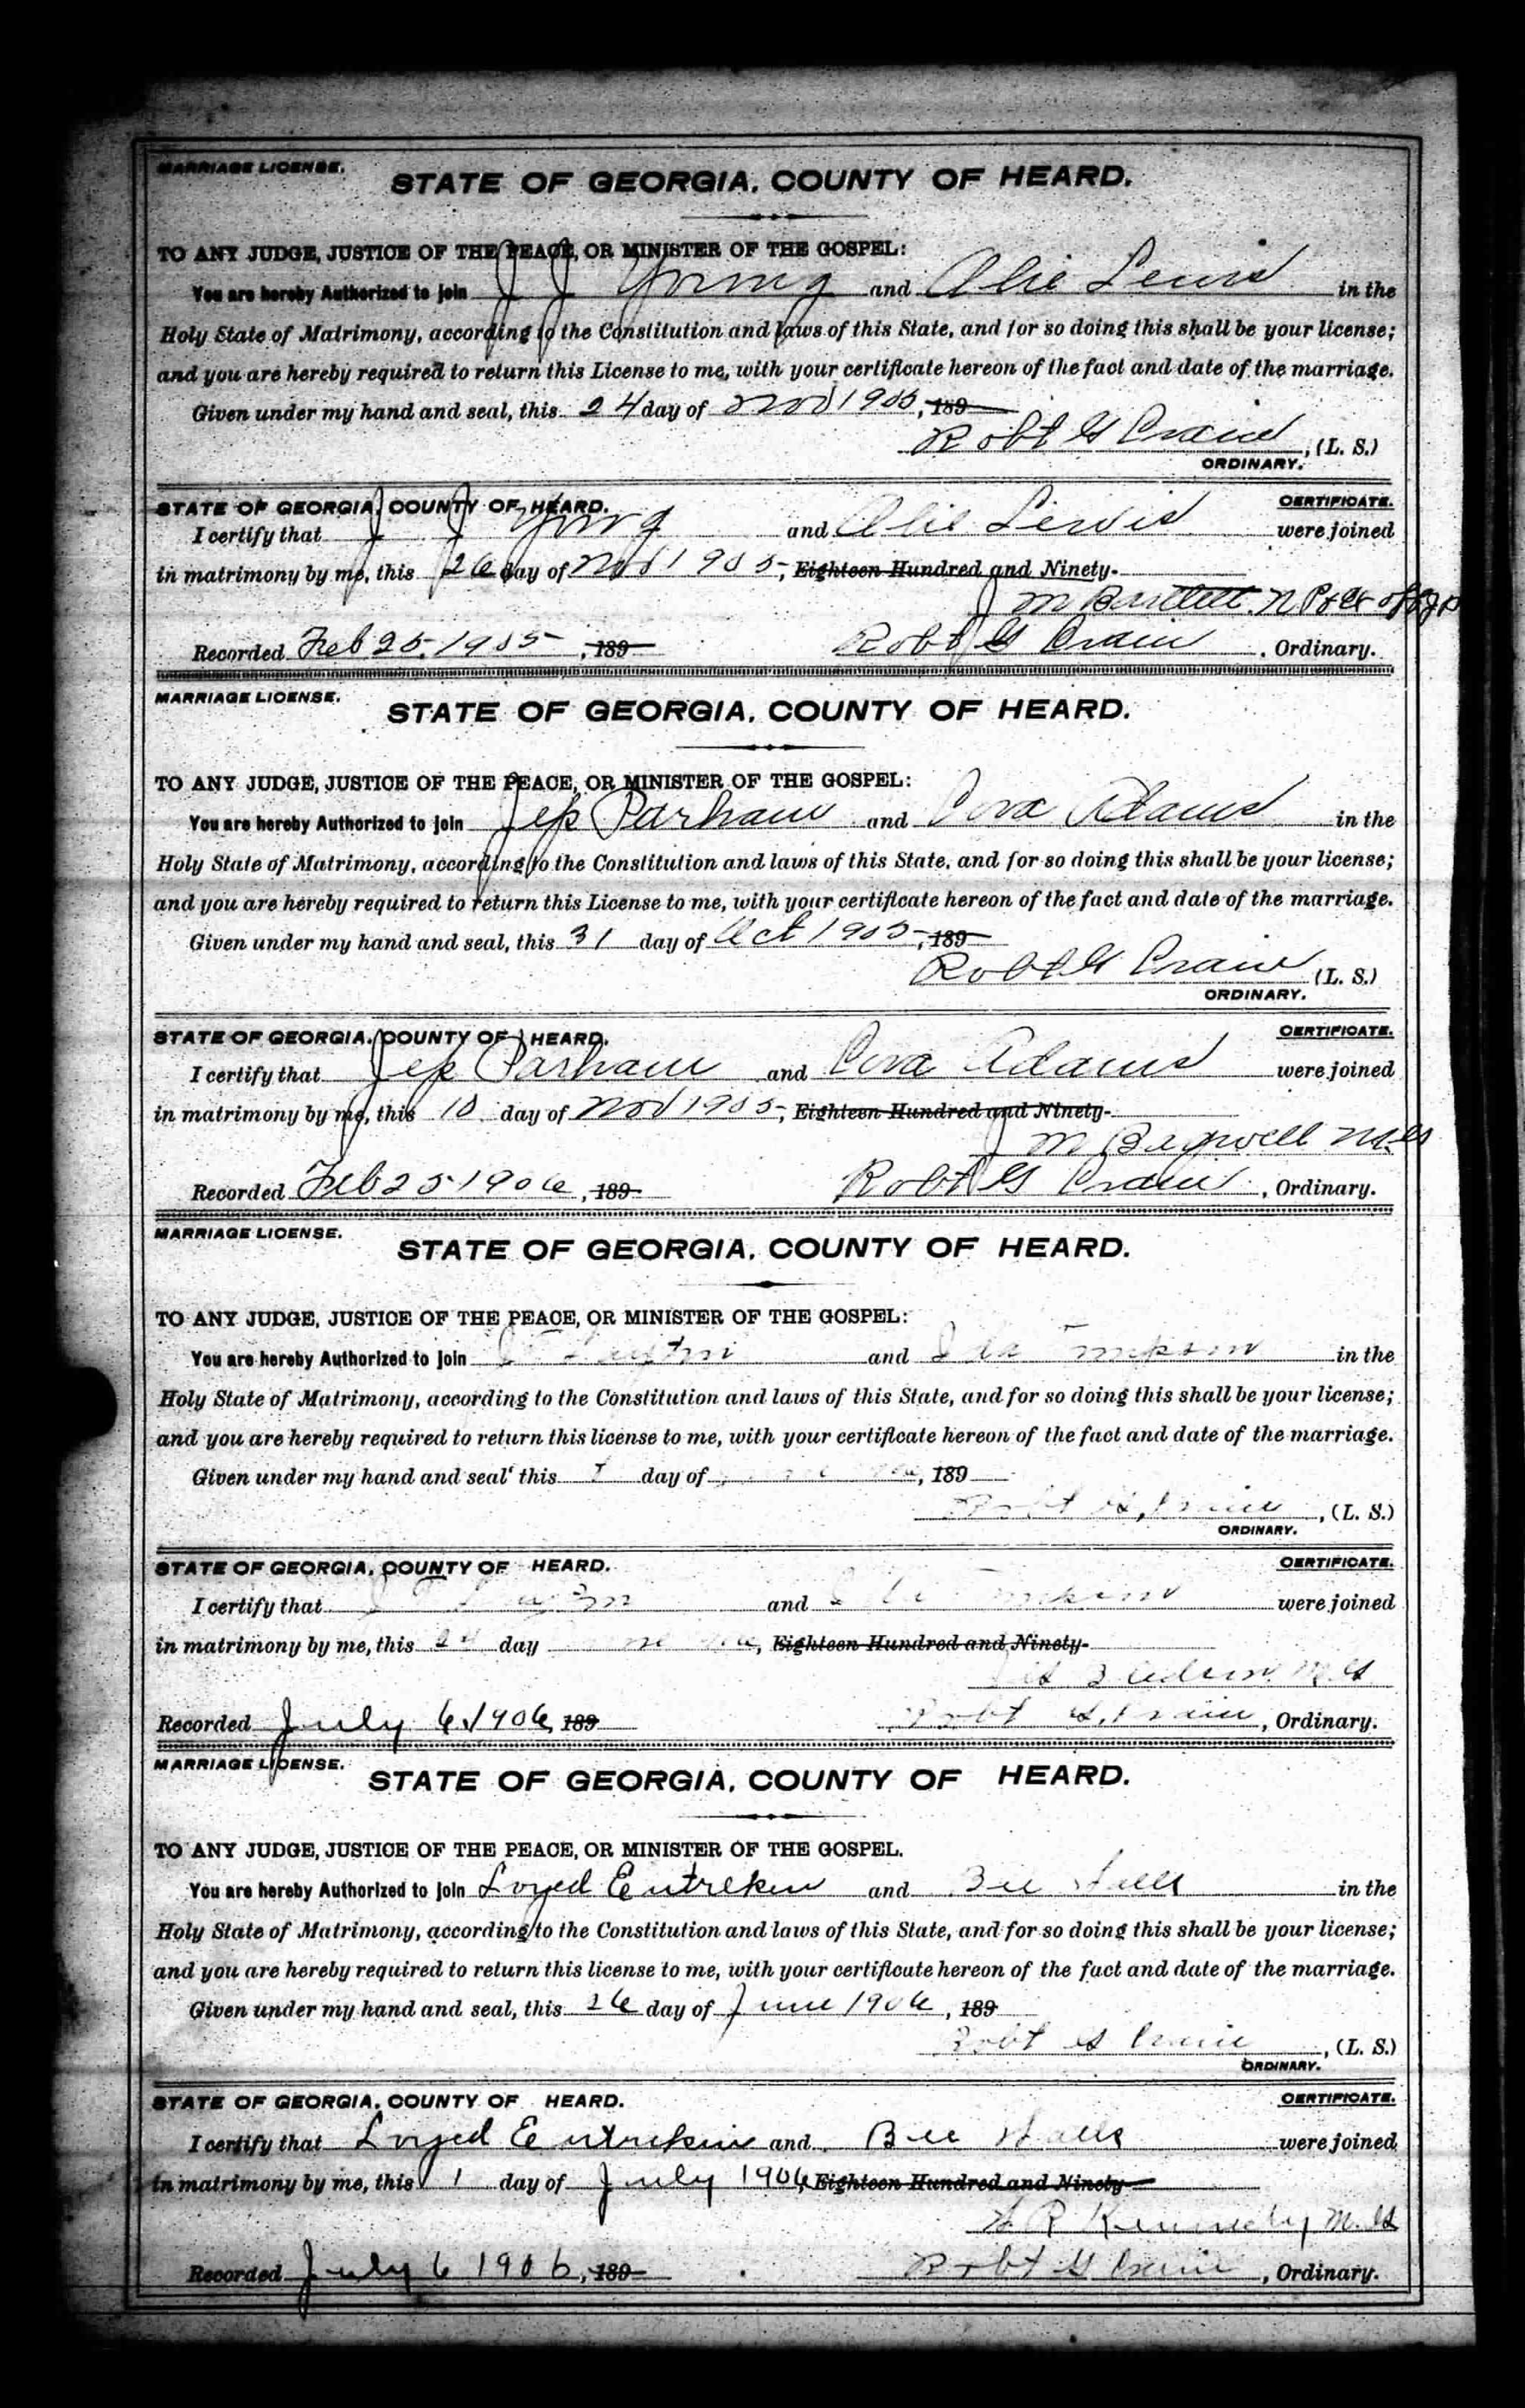 MARRIAGE LICENSE.
STATE OF GEORGIA, COUNTY OF HEARD.
TO ANY JUDGE, JUSTICE OF THE PEACE, OR MINISTER OF THE GOSPEL:
You are hereby Authorized to join J J Young and Alie Lewis in the
Holy State of Matrimony, according to the Constitution and laws of this State, and for so doing this shall be your license;
and you are hereby required to return this License to me, with your certificate hereon of the fact and date of the marriage.
Given under my hand and seal, this 24 day of Nov 1905, 189
Robt G Crain, (L. S.)
ORDINARY.
STATE OF GEORGIA, COUNTY OF HEARD. CERTIFICATE.
I certify that J J Young and Alie Lewis were joined
in matrimony by me, this 26 day of Nov 1905, Eighteen Hundred and Ninety-
J M Bartlett N P
Recorded Feb 25, 1905, 189 Robt G Crain, Ordinary.
MARRIAGE LICENSE.
STATE OF GEORGIA, COUNTY OF HEARD.
TO ANY JUDGE, JUSTICE OF THE PEACE, OR MINISTER OF THE GOSPEL:
You are hereby Authorized to join Jep Parham and Cora Adams in the
Holy State of Matrimony, according to the Constitution and laws of this State, and for so doing this shall be your license;
and you are hereby required to return this License to me, with your certificate hereon of the fact and date of the marriage.
Given under my hand and seal, this 31 day of Oct 1905, 189
Robt G Crain (L. S.)
ORDINARY.
STATE OF GEORGIA, COUNTY OF HEARD. CERTIFICATE.
I certify that Jep Parham and Cora Adams were joined
in matrimony by me, this 10 day of Nov 1905, Eighteen Hundred and Ninety-
J M Bagwell M.G
Recorded Feb 25 1906, 189 Robt G Crain, Ordinary.
MARRIAGE LICENSE.
STATE OF GEORGIA, COUNTY OF HEARD.
TO ANY JUDGE, JUSTICE OF THE PEACE, OR MINISTER OF THE GOSPEL:
You are hereby Authorized to join and in the
Holy State of Matrimony, according to the Constitution and laws of this State, and for so doing this shall be your license;
and you are hereby required to return this license to me, with your certificate hereon of the fact and date of the marriage.
Given under my hand and seal this day of , 189
Robt G. Crain, (L. S.)
ORDINARY.
STATE OF GEORGIA, COUNTY OF HEARD. CERTIFICATE.
I certify that and were joined
in matrimony by me, this 24 day , Eighteen Hundred and Ninety-
M.G
Recorded July 6, 1906, 189 Robt G. Crain, Ordinary.
MARRIAGE LICENSE.
STATE OF GEORGIA, COUNTY OF HEARD.
TO ANY JUDGE, JUSTICE OF THE PEACE, OR MINISTER OF THE GOSPEL.
You are hereby Authorized to join Loyed Entrekin and Bee in the
Holy State of Matrimony, according to the Constitution and laws of this State, and for so doing this shall be your license;
and you are hereby required to return this license to me, with your certificate hereon of the fact and date of the marriage.
Given under my hand and seal, this 26 day of June 1906, 189
Robt G Crain, (L. S.)
ORDINARY.
STATE OF GEORGIA, COUNTY OF HEARD. CERTIFICATE.
I certify that Loyed Entrekin and Bee were joined
in matrimony by me, this 1 day of July 1906, Eighteen Hundred and Ninety
R Kennedy M.G
Recorded July 6 1906, 189 Robt G Crain, Ordinary.